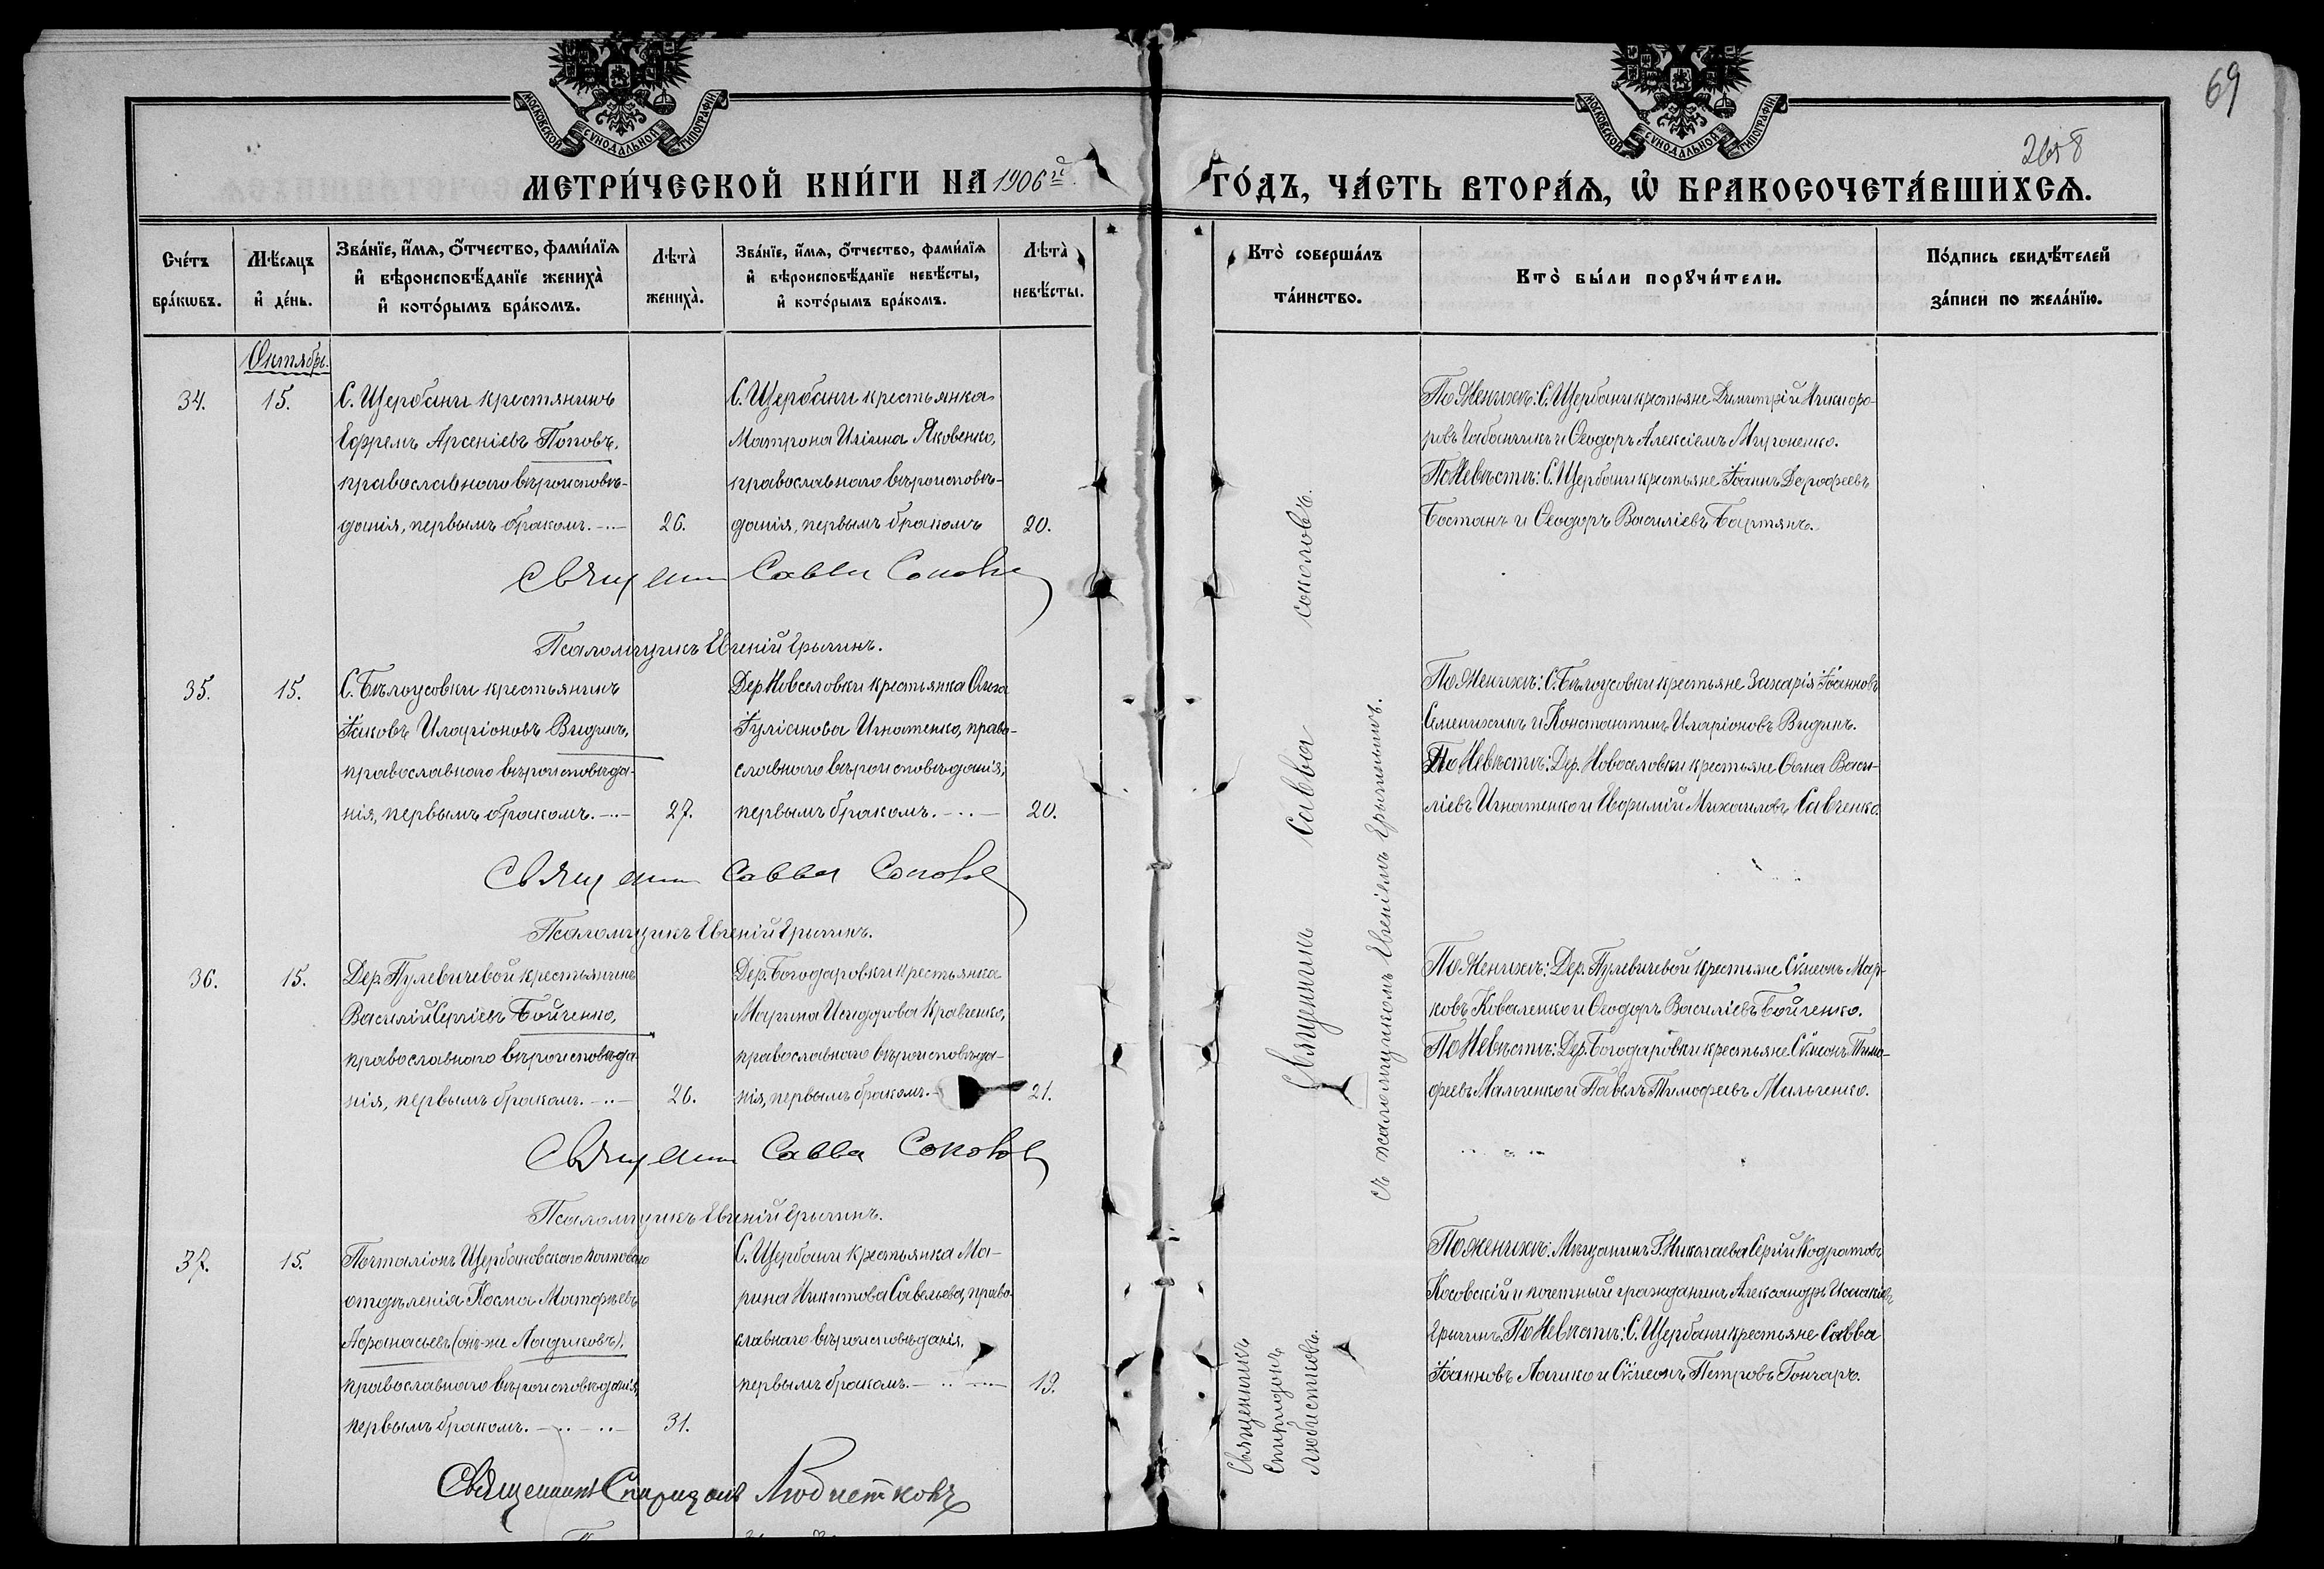 69
2658
МОСКОВСКОЙ СѴНОДАЛЬНОЙ ТИПОГРАФІИ
МОСКОВСКОЙ СѴНОДАЛЬНОЙ ТИПОГРАФІИ
МЕТРИ́ЧЕСКОЙ КНИ́ГИ НА 1906й ГО́ДЪ, ЧА́СТЬ ВТОРА́Ѧ, Ѡ҆ БРАКОСОЧЕТА́ВШИХСѦ.
Сче́тъ
бра́кѡвъ.
Мѣ́сяцъ
и҆ де́нь.
Зва́нїе, и҆́мѧ, ѻ҆́тчество, фами́лїѧ
и҆ вѣроисповѣ́данїе жениха̀
и҆ кото́рымъ бра́комъ.
Лѣта̀
жениха̀.
Зва́нїе, и҆́мѧ, ѻ҆́тчество, фами́лїѧ
и҆ вѣроисповѣ́данїе невѣ́сты,
и҆ кото́рымъ бра́комъ.
Лѣта̀
невѣ́сты.
Кто̀ соверша́лъ
та́инство.
Кто̀ бы́ли порꙋчи́тели.
По́дпись свидѣ́телей
за́писи по жела́нїю.
Октябрь.
34.
15.
С. Щербани крестянинъ
Ефремъ Арсеніевъ Поповъ,
православнаго вѣроисповѣ-
данія, первымъ бракомъ.
26.
С. Щербани крестьянка
Матрона Иліина Яковенко,
православнаго вѣроисповѣ-
данія, первымъ бракомъ
20.
По Женихѣ: С. Щербани крестьяне Димитрій Никифо-
ровъ и Ѳеодоръ Алексіевъ
По Невѣстѣ: С. Щербани крестьяне Іоаннъ Дорофеевъ
Бостанъ и Ѳеодоръ Василіевъ
Священникъ Савва Соколовъ
Псаломщикъ Евгеній Ерыгинъ.
35.
15.
С. Бѣлоусовки крестьянинъ
Іаковъ Иларіоновъ Видинъ,
православнаго вѣроисповѣда-
нія, первымъ бракомъ.
27.
Дер. Новоселовки крестьянка Ольга
Іуліанова Игнатенко, право-
славнаго вѣроисповѣданія,
первымъ бракомъ.
20.
По Женихѣ: С. Бѣлоусовки крестьяне Захарія Іоанновъ
и Константинъ Иларіоновъ Видинъ.
По Невѣстѣ: Дер. Новоселовки крестьяне Ѳома Васи-
ліевъ Игнатенко и Евфимій Михаиловъ Савченко.
Священникъ Савва Соколовъ
Псаломщикъ Евгеній Ерыгинъ.
36.
15.
Дер. Пулевичевой крестьянинъ
Василій Сергіевъ Бойченко,
православнаго вѣроисповѣда
нія, первымъ бракомъ.
26.
Дер. Богодаровки крестьянка
Марина Исидорова Кравченко,
православнаго вѣроисповѣда-
нія, первымъ бракомъ.
21.
По Женихѣ: Дер. Пулевичевой крестьяне Сѵмеонъ Мар-
ковъ Коваленко и Ѳеодоръ Василіевъ Бойченко.
По Невѣстѣ: Дер. Богодаровки крестьяне Сѵмеонъ Тимо-
феевъ Мальченко и Павелъ Тимофеевъ Мильченко.
Священникъ Савва Соколовъ
Псаломщикъ Евгеній Ерыгинъ.
Священникъ Савва Соколовъ.
съ псаломщикомъ Евгеніемъ Ерыгинымъ.
37.
15.
Почталіонъ Щербановскаго почтоваго
отдѣленія Косма Матфѣевъ
Афанасьевъ (онъ-же Ладиковъ),
православнаго вѣроисповѣданія,
первымъ бракомъ.
31.
С. Щербани крестьянка Ма-
рина Никитова Савельева, право-
славнаго вѣроисповѣданія,
первымъ бракомъ.
19.
По женихѣ: Мѣщанинъ Г. Николаева Сергій Кодратовъ
Косовскій и почетный гражданинъ Александръ Исаакіевъ
Ерыгинъ. По Невѣстѣ: С. Щербани крестьяне Савва
Іоанновъ и Сѵмеонъ Петровъ Гончаръ.
Священникъ
Спиридонъ
Любистковъ.
Священникъ Спиридонъ Любистковъ